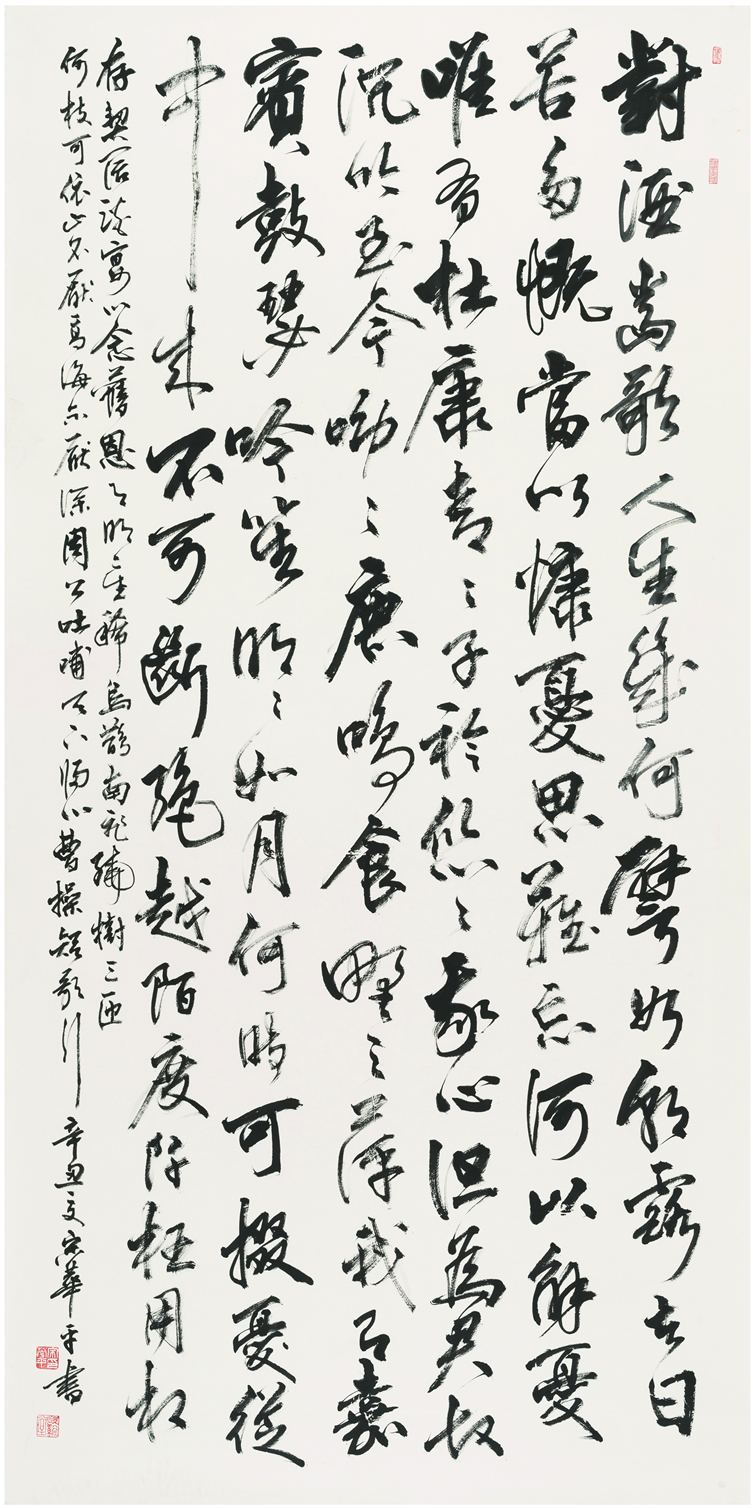 對酒當歌人生幾何譬如朝露去日
苦多慨當以慷憂思難忘何以解憂
唯有杜康青〻子衿悠〻我心但為君故
沉吟至今呦〻鹿鳴食野之苹我有嘉
賓鼓瑟吹笙明〻如月何時可掇憂從
中來不可斷絕越陌度阡枉用相
存契闊談宴心念舊恩月明星稀烏鵲南飛繞樹三匝
何枝可依山不厭高海不厭深周公吐哺天下歸心曹操短歌行 辛丑夏宋華平書